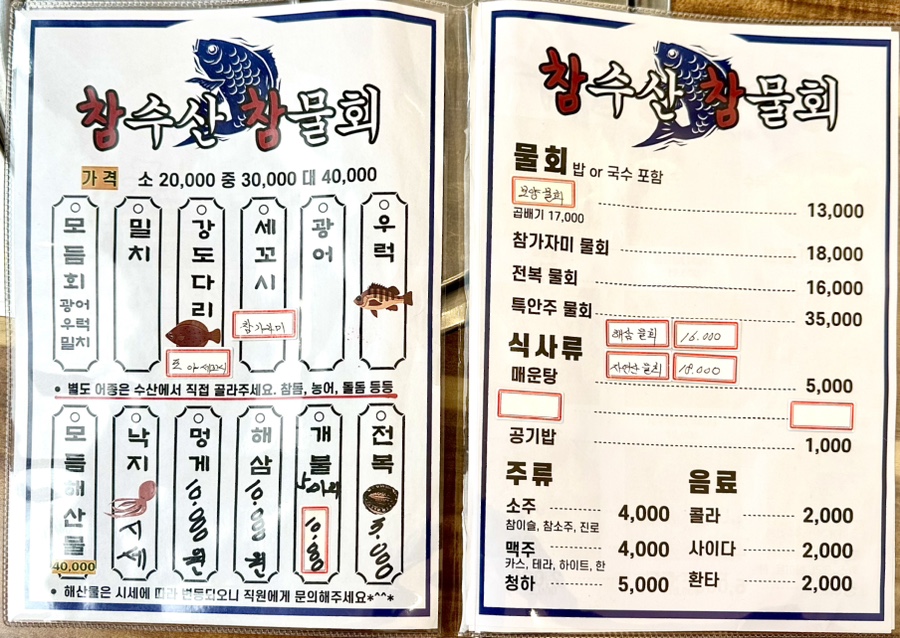 참수산 참물회
가격 소 20,000 중 30,000 대 40,000
모듬회 광어 우럭 밀치
밀치
강도다리
세꼬시
광어
우럭
참가자미
세꼬시
• 별도 어종은 수산에서 직접 골라주세요. 참돔, 농어, 돌돔 등등
모듬해산물 40,000
낙지 시세
멍게 10,000원
해삼 10,000원
개불
전복
• 해산물은 시세에 따라 변동되오니 직원에게 문의해주세요*^^*
참수산 참물회
물회 밥 or 국수 포함
모듬 물회 13,000
곱배기 17,000
참가자미 물회 18,000
전복 물회 16,000
특안주 물회 35,000
해삼 물회 16.000
자연산 물회 18.000
식사류
매운탕 5,000
공기밥 1,000
주류
소주 4,000
참이슬, 참소주, 진로
맥주 4,000
카스, 테라, 하이트, 한
청하 5,000
음료
콜라 2,000
사이다 2,000
환타 2,000